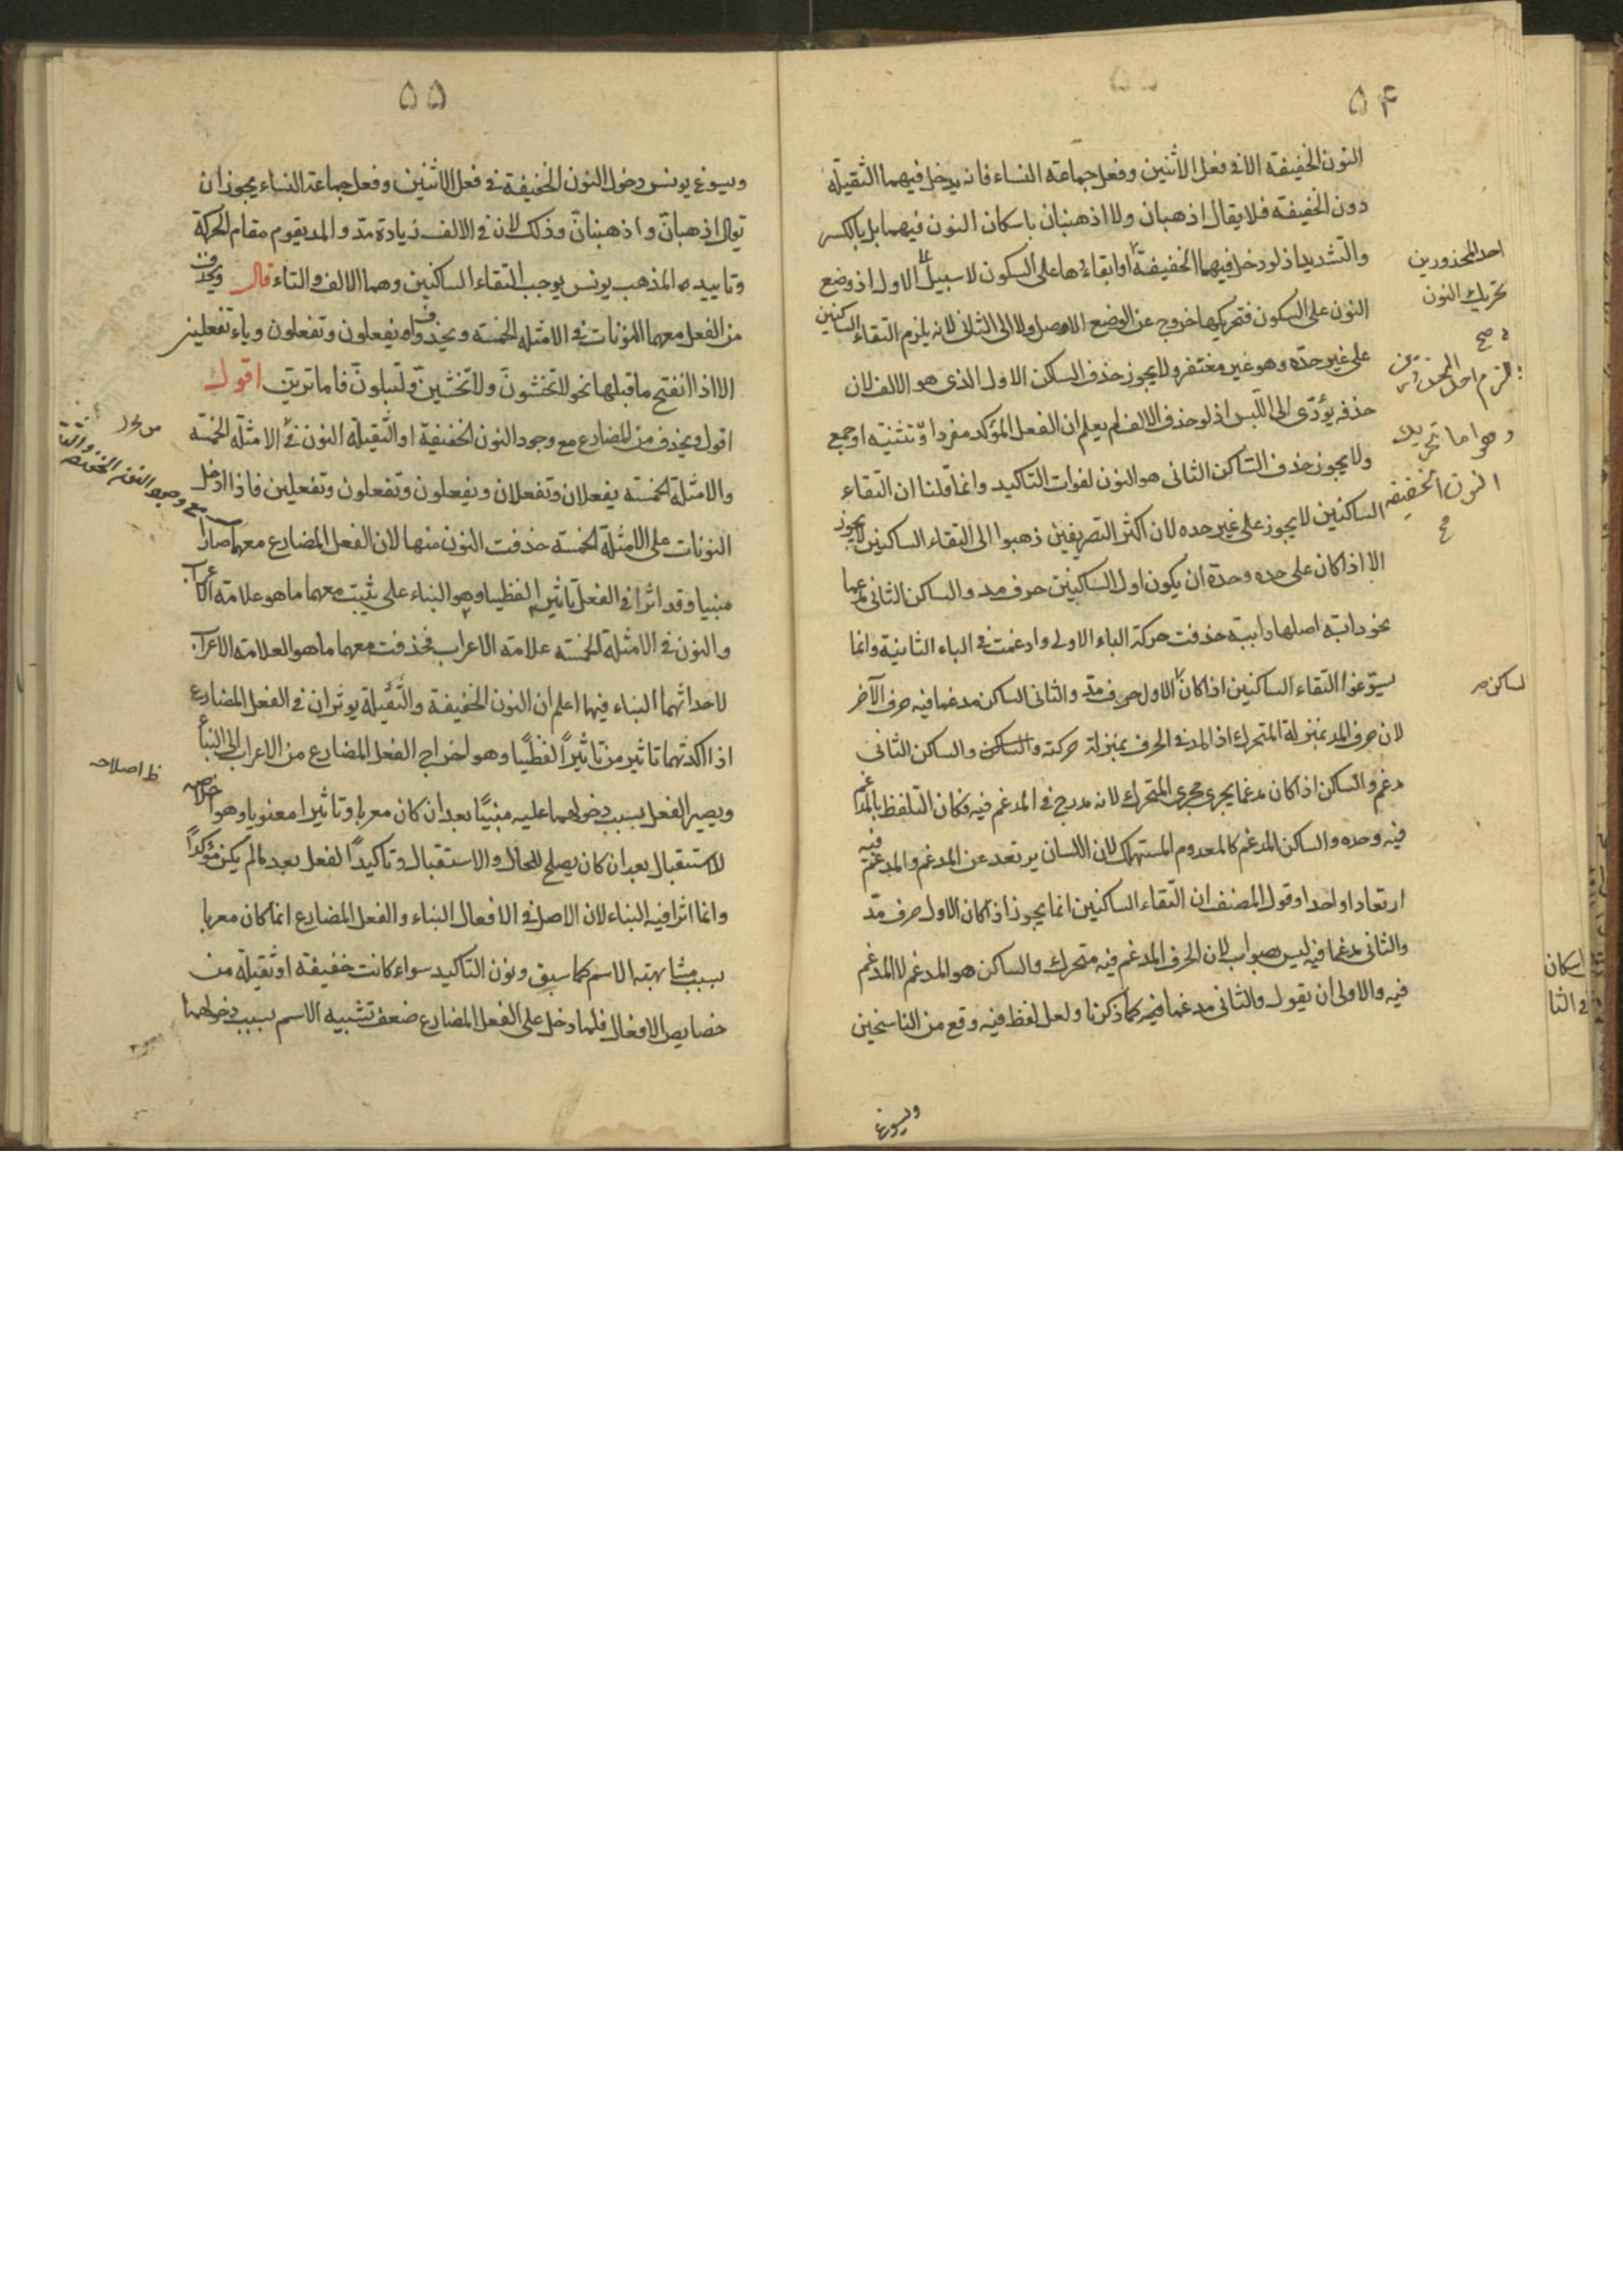 ٥٤
النون الخفيفة الا في فعل الاثنين وفعل جماعة النساء فانه يدخل فيهما الثقيلة
دون الخفيفة فلا يقال اذهبان ولا اذهبنان باسكان النون فيهما بل بالكسر
والتشديد اذ لو دخل فيهما الخفيفة اوابقاءها على السكون لا سبيل الى الاول اذ وضع
النون على السكون فتحريكها خروج عن الوضع الاصل ولا الى الثاني لانه يلزم التقاء الساكنين
على غير حده وهو غير مغتفر ولا يجوز حذف السكن الاول الذي هو الالف لان
حذفه يؤدّى الى اللّبس اذ لو حذف الالف لم يعلم ان الفعل المؤكد مفردا و تثنيته او جمع
ولا يجوز حذف الساكن الثانى هو النون لفوات التاكيد وانما قلنا ان التقاء
الساكنين لا يجوز على غير حده لان اكثر التصريفين ذهبوا الى التقاء الساكنين لا يجوز
الا اذا كان على حده وحدة ان يكون اول الساكنين حرف مد والساكن الثانى مدغما
نحو دابة اصلها دابية حذفت حركة الباء الاولى وادغمت في الباء الثانية وانما
سيوّغوا التقاء الساكنين اذا كان الاول حرف مد والثانى الساكن مدغما فيه حرف الآخر
لان حرف المد بمنزلة المتحرك اذ المد في الحرف بمنزلة حركته والساكن والساكن الثانى
دغم والساكن اذا كان مدغما يجرى مجرى المتحرك لانه مدرج في المدغم فيه فكان التلفظ بالمدغم
فيه وحده والساكن المدغم كالمعدوم المستهلك لان اللسان يرتعد عن المدغم والمدغم فيه
ارتعادا واحدا وقول المصنف ان التقاء الساكنين انما يجوز اذا كان الاول حرف مدّ
والثانى مدغما فيه ليس بصواب لان الحرف المدغم فيه متحرك والساكن هو المدغم لا المدغم
فيه والاولى ان يقول والثانى مدغما فيه كما ذكرنا ولعل لفظ فيه وقع من الناسخين
ويسوغ
احد المحذورين
تحريك النون
صح
وهو اما تحريك
النون الخفيفه
لساكن
اسكان
في الثا
٥٥
ويسوغ يونس دخول النون الخفيفة في فعل الاثنين وفعل جماعة النساء يجوز ان
يقال اذهبانّ واذهبنانّ وذلك لان في الالف زيادة مدّ والمد يقوم مقام الحركة
وتاييده المذهب يونس يوجب التقاء الساكنين وهما الالف والتاء قال ويحذف
من الفعل معهما النونات في الامثلة الخمسة ويحذف واو يفعلون وتفعلون وياء تفعلين
الا اذا انفتح ما قبلها نحو لا تخشونّ ولا تخشينّ ولتبلونّ فاما ترينّ اقول
اقول ويحذف من المضارع مع وجود النون الخفيفة او الثقيلة النون في الامثلة الخمسة
والامثلة الخمسة يفعلان وتفعلان ويفعلون وتفعلون وتفعلين فاذا ادخل
النونات على الامثلة الخمسة حذفت النون منها لان الفعل المضارع معهما صارا
مبنيا وقد اثرا في الفعل تاثيرا لفظيا وهو البناء على يثبت معهما ما هو علامة الاعراب
والنون في الامثلة الخمسة علامة الاعراب فحذفت معهما ما هو العلامة الاعراب
لاحداثهما البناء فيها اعلم ان النون الخفيفة والثّقيلة يوثران في الفعل المضارع
اذا اكدتهما تاثيرين تاثيراً لفظيًا وهو اخراج الفعل المضارع من الاعراب الى البناء
ويصير الفعل بسبب دخولهما عليه مبنيًا بعد ان كان معربا وتاثيرا معنويا وهو اخلاصه
للاستقبال بعد ان كان يصلح للحال والاستقبال وتاكيداً لفعل بعد مالم يكن مؤكداً
وانما اثرا فيه البناء لان الاصل في الافعال البناء والفعل المضارع انما كان معربا
بسبب مشابهته الاسم كما سبق ونون التاكيد سواء كانت خفيفة او ثقيلة من
خصايص الافعال فلما دخل على الفعل المضارع ضعف تشبيه الاسم بسبب دخولهما
ظ اصلاحه